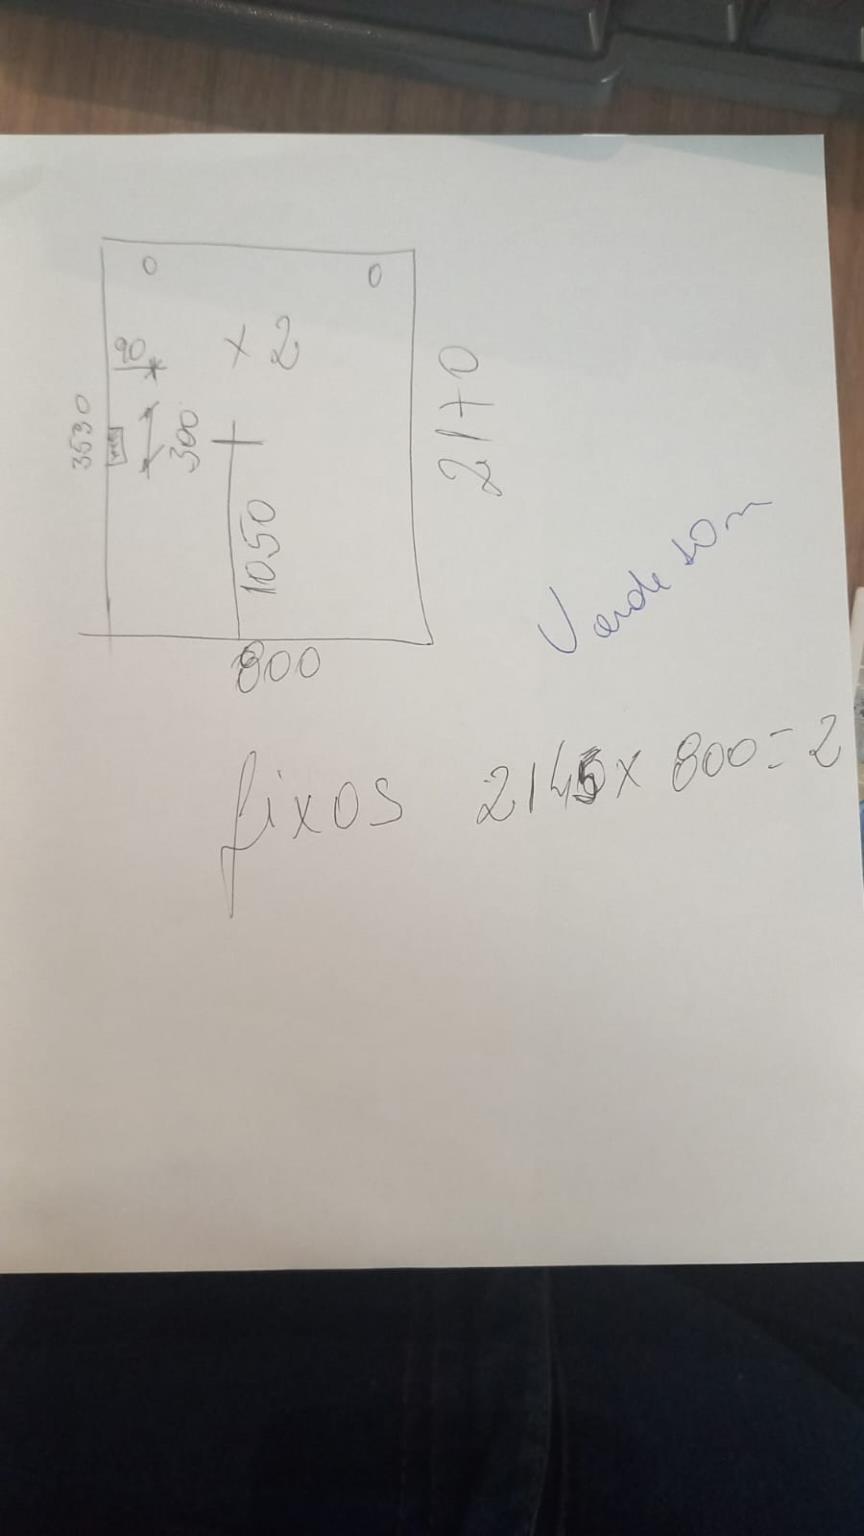 O O
90
x 2
3530
300
2170
1050
Verde 10 m
800
fixos 2145 x 800 = 2